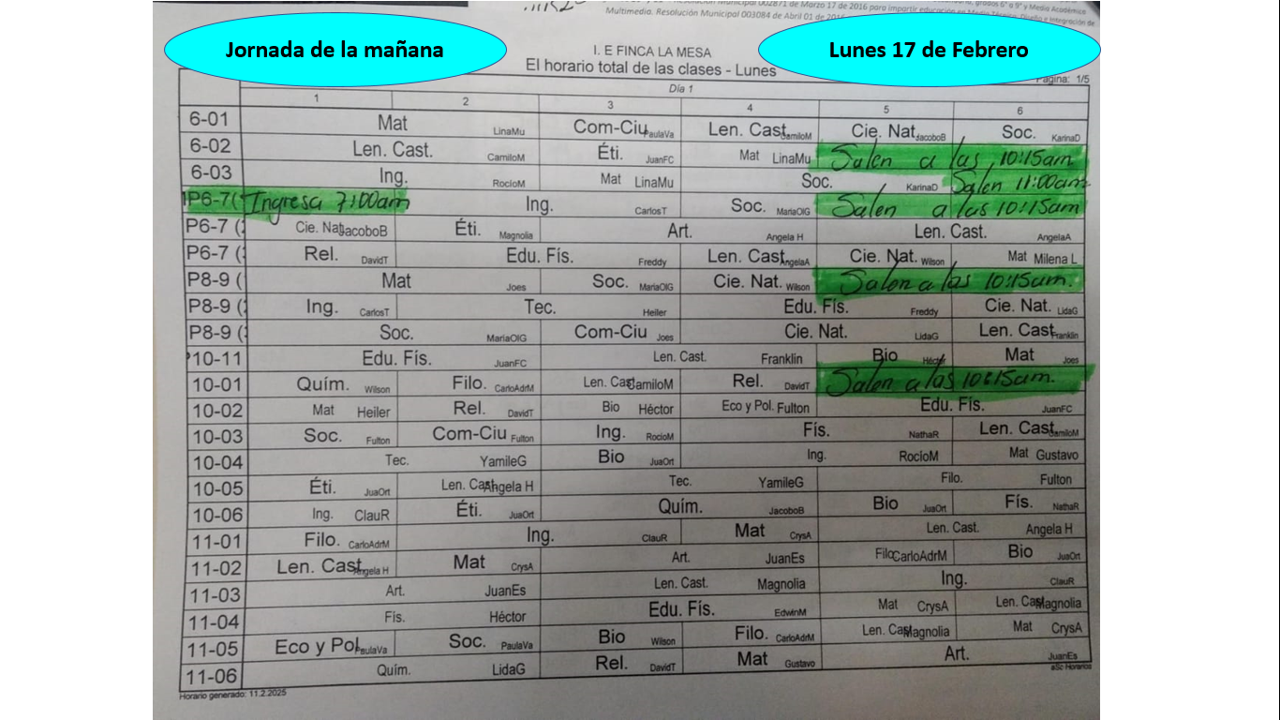 Multimedia. Resolución Municipal 003084 de Abril 01 de
Jornada de la mañana
Lunes 17 de Febrero
I. E FINCA LA MESA
El horario total de las clases - Lunes
Página: 1/5
Día 1
1 2 3 4 5 6
6-01 Mat LinaMu Com-Ciu PaulaVa Len. Cast. CamiloM Cie. Nat. JacoboB Soc. KarinaD
6-02 Len. Cast. CamiloM Éti. JuanFC Mat LinaMu Salen a las 10:15am
6-03 Ing. RocioM Mat LinaMu Soc. KarinaD Salen 11:00am
P6-7( Ingresa 7:00am Ing. CarlosT Soc. MariaOlG Salen a las 10:15am
P6-7 ( Cie. Nat. JacoboB Éti. Magnolia Art. Angela H Len. Cast. AngelaA
P6-7 ( Rel. DavidT Edu. Fís. Freddy Len. Cast. AngelaA Cie. Nat. Wilson Mat Milena L
P8-9 ( Mat Joes Soc. MariaOlG Cie. Nat. Wilson Salen a las 10:15am.
P8-9 ( Ing. CarlosT Tec. Heiler Edu. Fís. Freddy Cie. Nat. LidaG
P8-9 ( Soc. MariaOlG Com-Ciu Joes Cie. Nat. LidaG Len. Cast. Franklin
P10-11 Edu. Fís. JuanFC Len. Cast. Franklin Bio Héctor Mat Joes
10-01 Quím. Wilson Filo. CarloAdrM Len. Cast. CamiloM Rel. DavidT Salen a las 10:15am.
10-02 Mat Heiler Rel. DavidT Bio Héctor Eco y Pol. Fulton Edu. Fís. JuanFC
10-03 Soc. Fulton Com-Ciu Fulton Ing. RocioM Fís. NathaR Len. Cast. CamiloM
10-04 Tec. YamileG Bio JuaOrt Ing. RocioM Mat Gustavo
10-05 Éti. JuaOrt Len. Cast. Angela H Tec. YamileG Filo. Fulton
10-06 Ing. ClauR Éti. JuaOrt Quím. JacoboB Bio JuaOrt Fís. NathaR
11-01 Filo. CarloAdrM Ing. ClauR Mat CrysA Len. Cast. Angela H
11-02 Len. Cast. Angela H Mat CrysA Art. JuanEs Filo. CarloAdrM Bio JuaOrt
11-03 Art. JuanEs Len. Cast. Magnolia Ing. ClauR
11-04 Fís. Héctor Edu. Fís. EdwinM Mat CrysA Len. Cast. Magnolia
11-05 Eco y Pol. PaulaVa Soc. PaulaVa Bio Wilson Filo. CarloAdrM Len. Cast. Magnolia Mat CrysA
11-06 Quím. LidaG Rel. DavidT Mat Gustavo Art. JuanEs
Horario generado: 11.2.2025
aSc Horarios